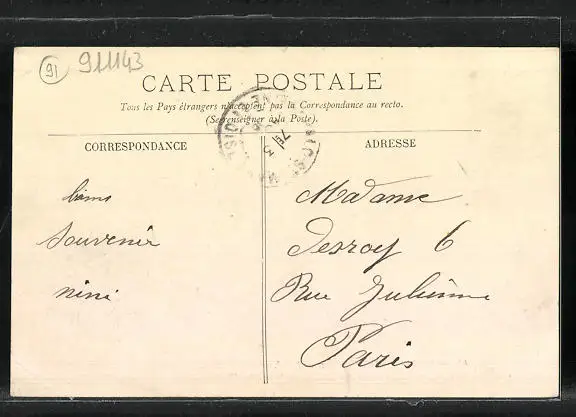 91
911143
CARTE POSTALE
Tous les Pays étrangers n'acceptent pas la Correspondance au recto.
(Se renseigner à la Poste).
CORRESPONDANCE
ADRESSE
bons
souvenir
nini
Madame
Desroy 6
Rue Julienne
Paris